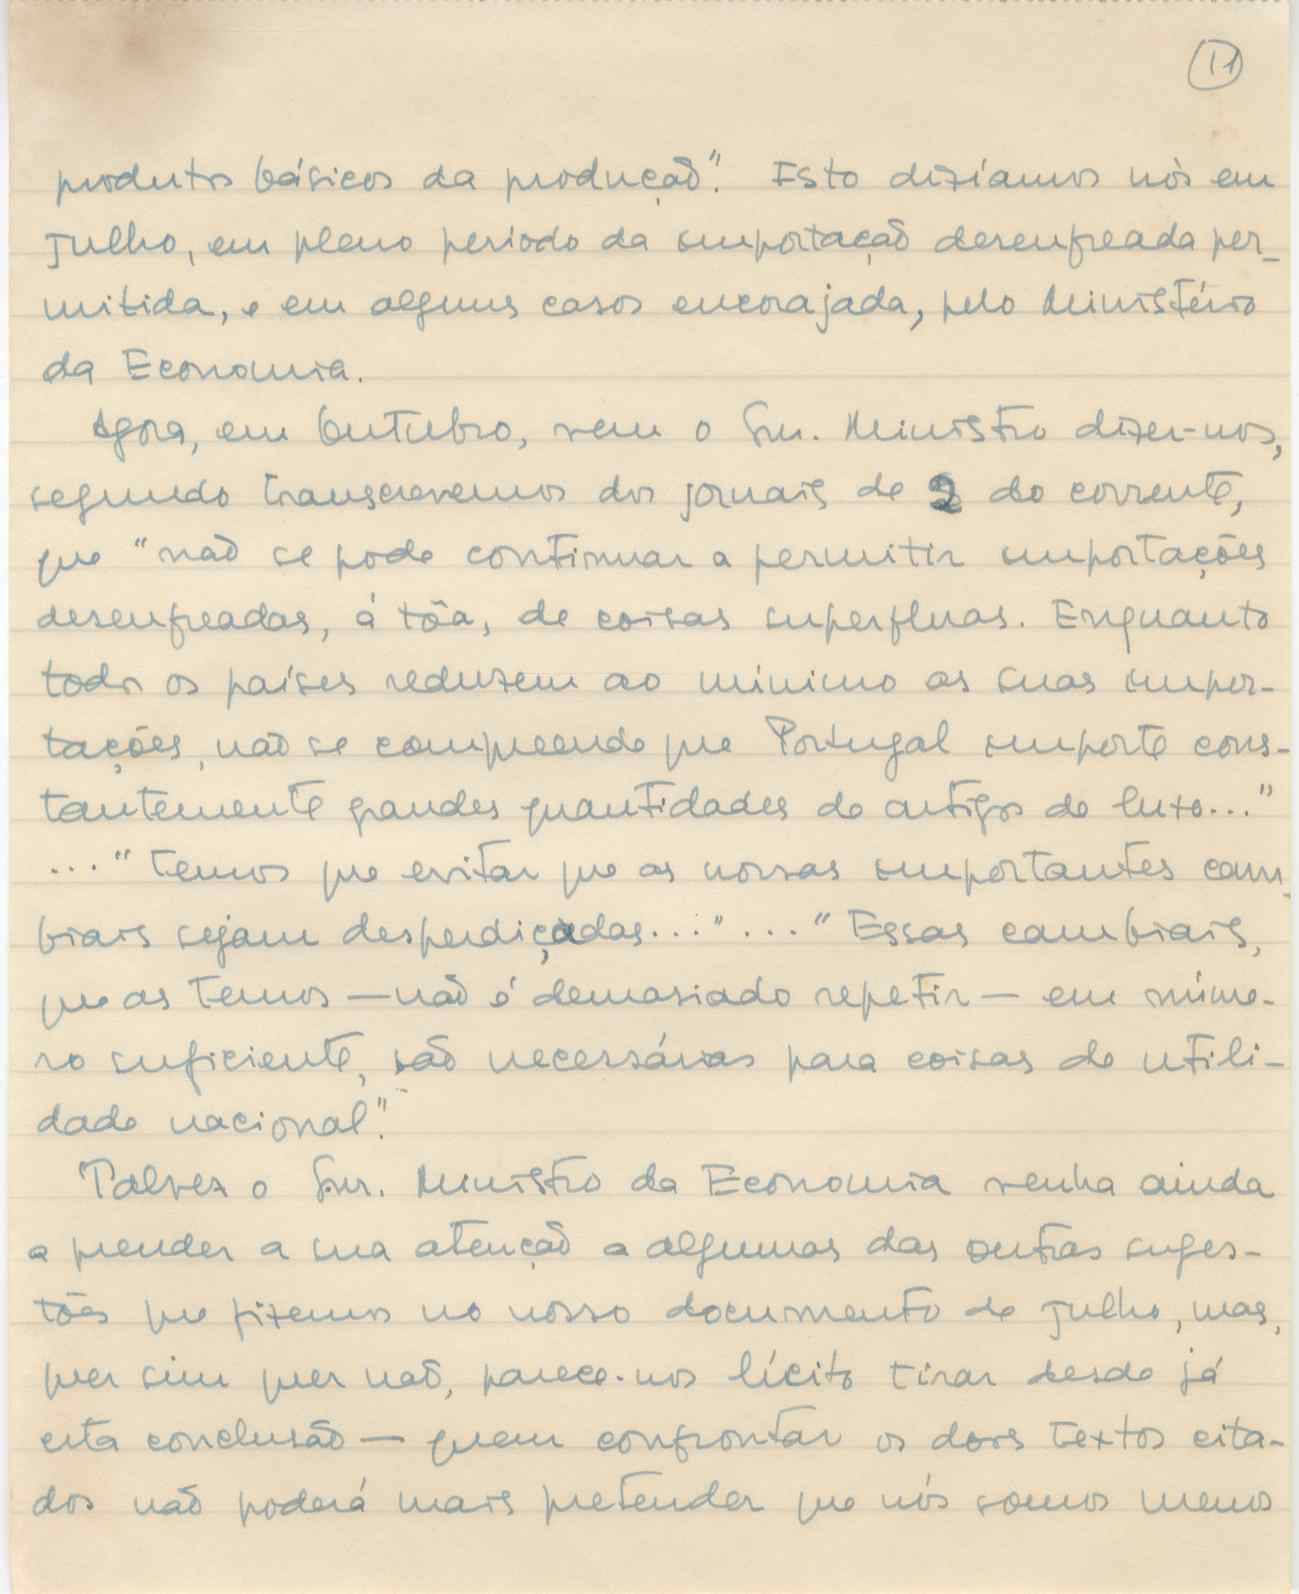 11
produtos básicos da produção". Isto dizíamos nós em
Julho, em pleno periodo da importação desenfreada per-
mitida, e em alguns casos encorajada, pelo Ministério
da Economia.
Agora, em Outubro, vem o Snr. Ministro dizer-nos,
segundo transcrevemos dos jornais de 2 do corrente,
que "não se pode continuar a permitir importações
desenfreadas, á tôa, de coisas superfluas. Enquanto
todos os países reduzem ao minimo as suas impor-
tações, não se compreende que Portugal importe cons-
tantemente grandes quantidades de artigos de luxo..."
..." Temos que evitar que as nossas importantes cam-
biais sejam desperdiçadas..." ... "Essas cambiais,
que as temos — não é demasiado repetir — em núme-
ro suficiente, são necessárias para coisas de utili-
dade nacional".
Talvez o Snr. Ministro da Economia venha ainda
a prender a sua atenção a algumas das outras suges-
tões que fizemos no nosso documento de Julho, mas,
quer sim quer não, parece-nos lícito tirar desde já
esta conclusão — quem confrontar os dois textos cita-
dos não poderá mais pretender que nós somos menos